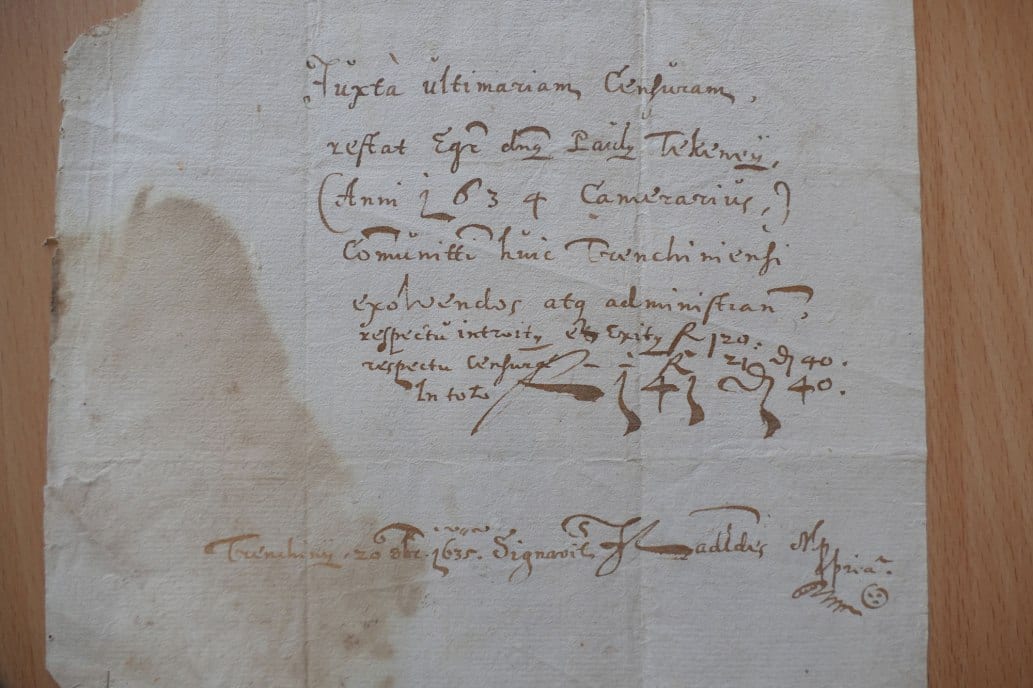 Juxtà ultimariam Censuram,
restat Egr dnꝰ Paulꝰ Tekeneÿ,
(Anni 1634 Camerarius,)
Comunitti huic Trenchiniensi
exolvendos atq administran,
respectu introitꝰ et Exitꝰ f 120:
respectu Censuræ – – f 21 d 40.
In toto f 141 d 40.
Trenchinÿ. 20 8br. 1635. Signavit Ladides Mp
pria.